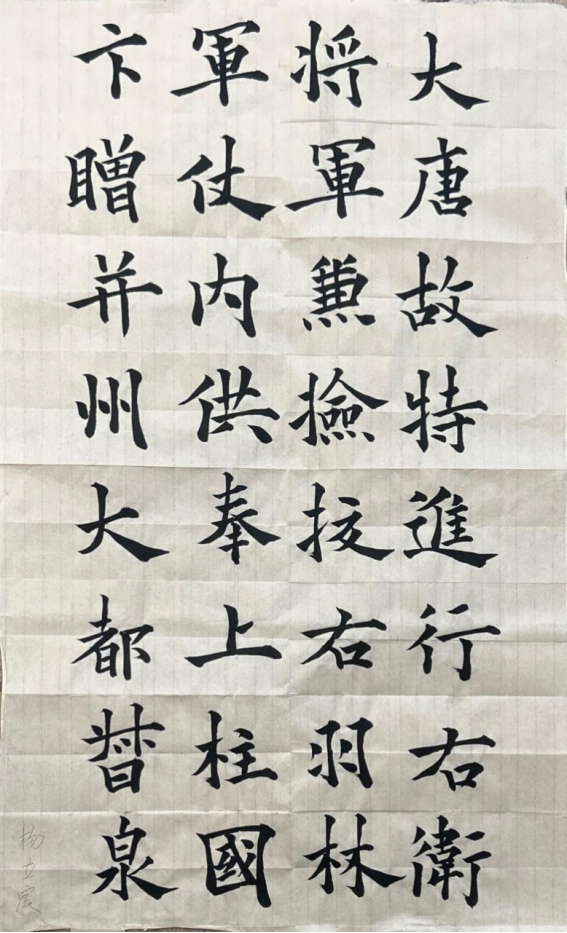 大唐故特進行右衛
将軍兼撿挍右羽林
軍仗内供奉上柱國
卞贈并州大都督泉
杨立宸